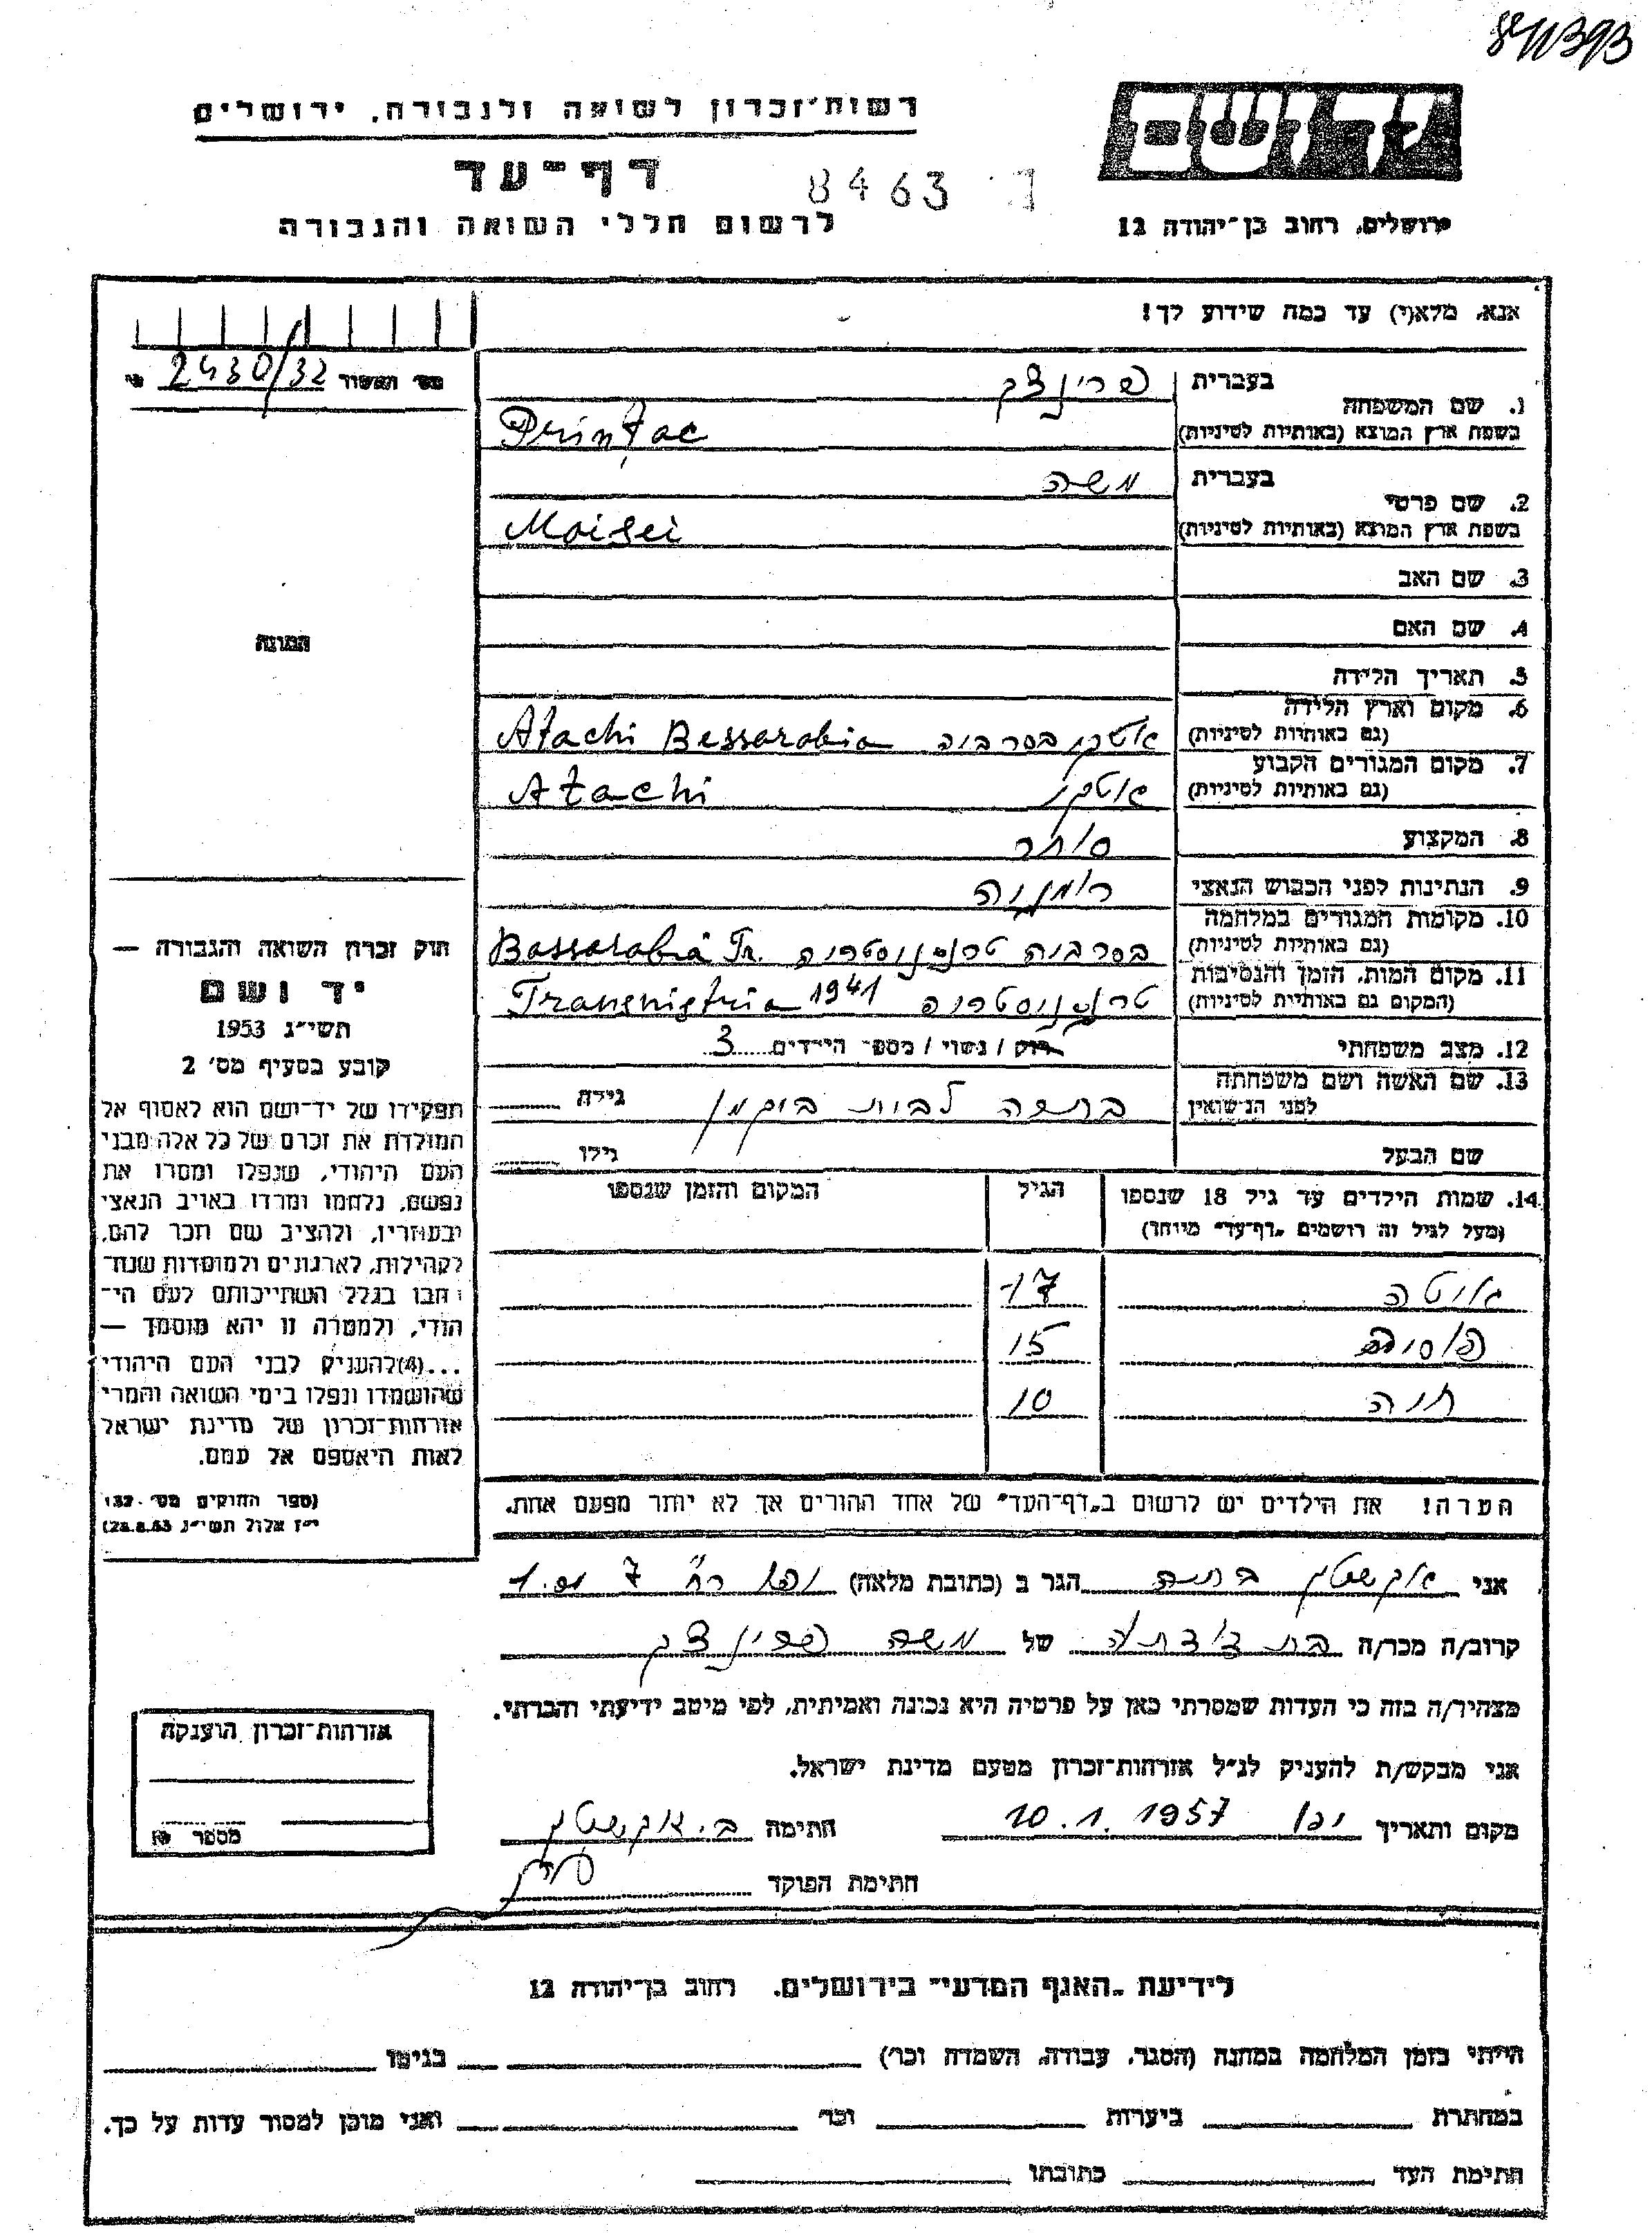 8411393
רשות־זכרון לשואה ולגבורה, ירושלים
יד ושם
דף־עד
8463
לרשום חללי השואה והגבורה
ירושלים, רחוב בן־יהודה 12
אנא, מלא(י) עד כמה שידוע לך!
2430/32
1. שם המשפחה בעברית פרינצק
בשפת ארץ המוצא (באותיות לטיניות) Prințac
2. שם פרטי בעברית משה
בשפת ארץ המוצא (באותיות לטיניות) Moisei
3. שם האב
4. שם האם
5. תאריך הלידה
6. מקום וארץ הלידה
(גם באותיות לטיניות) אטקי בסרביה Atachi Bessarabia
7. מקום המגורים הקבוע
(גם באותיות לטיניות) אטקי Atachi
8. המקצוע סוחר
9. הנתינות לפני הכבוש הנאצי רומניה
10. מקומות המגורים במלחמה
(גם באותיות לטיניות) בסרביה טרנסניסטריה Bassarabia Tr.
11. מקום המות, הזמן והנסיבות
(המקום גם באותיות לטיניות) טרנסניסטריה 1941 Transnistria
12. מצב משפחתי רווק / נשוי / מספר הילדים 3
13. שם האשה ושם משפחתה
לפני הנישואין לבית גילה
שם הבעל גילו
14. שמות הילדים עד גיל 18 שנספו הגיל המקום והזמן שנספו
(מעל לגיל זה רושמים "דף־עד" מיוחד)
17
15
חנה 10
הערה! את הילדים יש לרשום ב"דף־העד" של אחד ההורים אך לא יותר מפעם אחת.
התמונה
חוק זכרון השואה והגבורה —
יד ושם
תשי"ג 1953
קובע בסעיף מס' 2
תפקידו של יד־ושם הוא לאסוף אל
המולדת את זכרם של כל אלה מבני
העם היהודי, שנפלו ומסרו את
נפשם, נלחמו ומרדו באויב הנאצי
ובעוזריו, ולהציב שם וזכר להם,
לקהילות, לארגונים ולמוסדות שנח־
רבו בגלל השתייכותם לעם הי־
הודי, ולמטרה זו יהא מוסמך —
...(4) להעניק לבני העם היהודי
שהושמדו ונפלו בימי השואה והמרי
אזרחות־זכרון של מדינת ישראל
לאות היאספם אל עמם.
(ספר החוקים מס' 132,
י"ז אלול תשי"ג 28.8.53)
אני אקשטין ברכה הגר ב (כתובת מלאה) יפו רח' 7
קרוב/ה מכר/ה בת של משה פרינצק
מצהיר/ה בזה כי העדות שמסרתי כאן על פרטיה היא נכונה ואמיתית, לפי מיטב ידיעתי והכרתי.
אני מבקש/ת להעניק לנ"ל אזרחות־זכרון מטעם מדינת ישראל.
מקום ותאריך יפו 10.1.1957 חתימה ב. אקשטין
חתימת הפוקד
אזרחות־זכרון הוענקה
מספר
לידיעת "האגף המדעי" בירושלים, רחוב בן־יהודה 12
הייתי בזמן המלחמה במחנה (הסגר, עבודה, השמדה וכו') בגיטו
במחתרת ביערות וכו' ואני מוכן למסור עדות על כך.
חתימת העד כתובתו